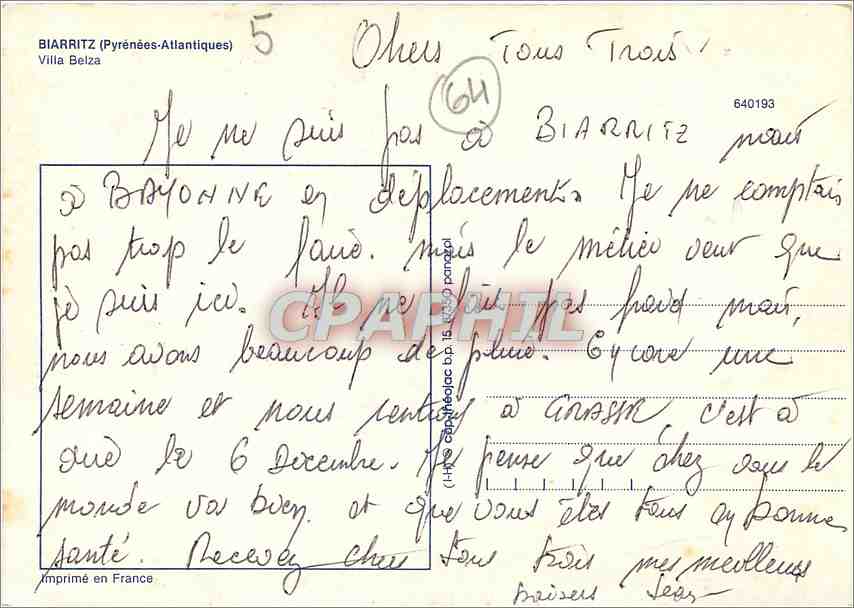 BIARRITZ (Pyrénées-Atlantiques)
Villa Belza
5
Chers Tous Trois
64
640193
Je ne suis pas à BIARRITZ mais
à BAYONNE en déplacement. Je ne comptais
pas trop le faire. mais le métier veut que
je suis ici. Il ne fais pas froid mais,
nous avons beaucoup de pluie. Encore une
semaine et nous rentrons à GRASSE, c'est à
dire le 6 Décembre. Je pense que chez vous le
monde va bien et que vous êtes tous en bonne
santé. Recevez chers tous trois mes meilleurs
baisers Jean
Imprimé en France
cap-théojac b.p. 15 87350 panazol
CPAPHIL